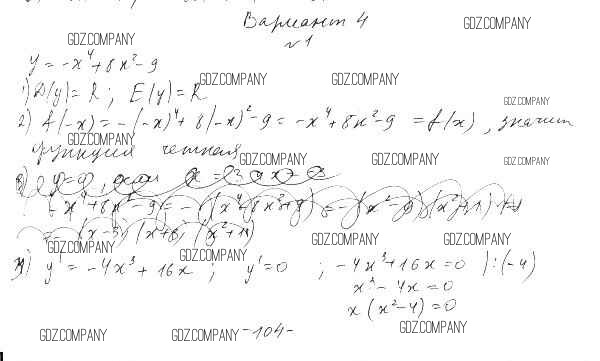 Вариант 4
GDZ.COMPANY
GDZ.COMPANY
№1
y = -x⁴ + 8x² - 9
GDZ.COMPANY GDZ.COMPANY
1) D(y) = R ; E(y) = R
GDZ.COMPANY
2) f(-x) = -(-x)⁴ + 8(-x)² - 9 = -x⁴ + 8x² - 9 = f(x), значит
GDZ.COMPANY
функция четная
GDZ.COMPANY GDZ.COMPANY GDZ.COMPANY
GDZ.COMPANY GDZ.COMPANY GDZ.COMPANY
GDZ.COMPANY
4) y' = -4x³ + 16x ; y' = 0 ; -4x³ + 16x = 0 |:(-4)
x³ - 4x = 0
x(x² - 4) = 0
GDZ.COMPANY GDZ.COMPANY -104- GDZ.COMPANY